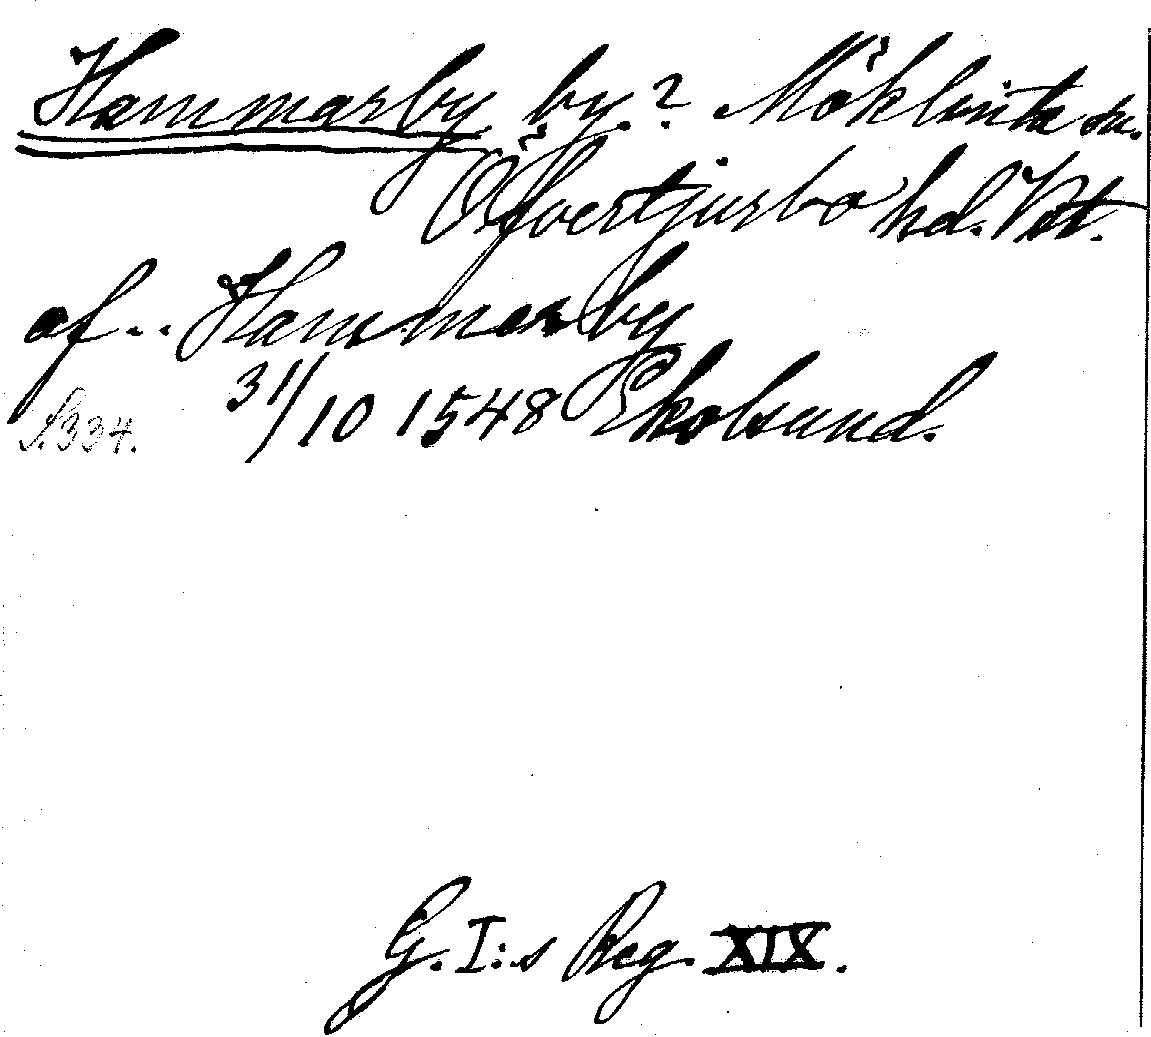 Hammarby by.? Möklinta sn.
Öfvertjurbo hd. Vtt.
af.. Hammarby
31/10 1548 Ekolsund.
S. 334.
G. I:s Reg. XIX.